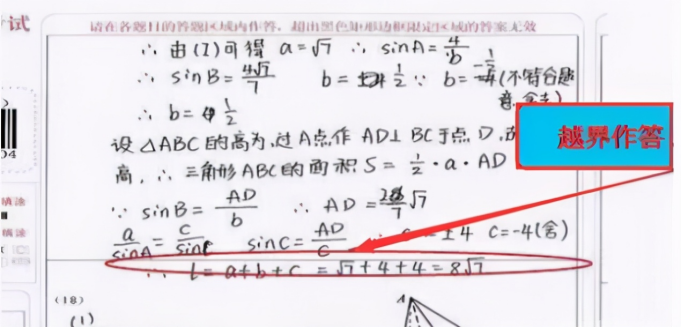 考试
请在各题目的答题区域内作答，超出黑色矩形边框限定区域的答案无效
∴ 由(I)可得 a=√7 ∴ sinA=4/b
∴ sinB=4√7/7 b= 1/2 ∵ b=-1/2(不符合题意,舍去)
∴ b= 1/2
设△ABC的高为,过A点作 AD⊥BC于点D,
越界作答
高,∴三角形ABC的面积S=1/2·a·AD
∵ sinB=AD/b ∴ AD= /7 √7
a/sinA=c/sinC sinC=AD/c ±4 c=-4(舍)
∴ l=a+b+c=√7+4+4=8√7
填涂
填涂
04
(18)
(1)
A